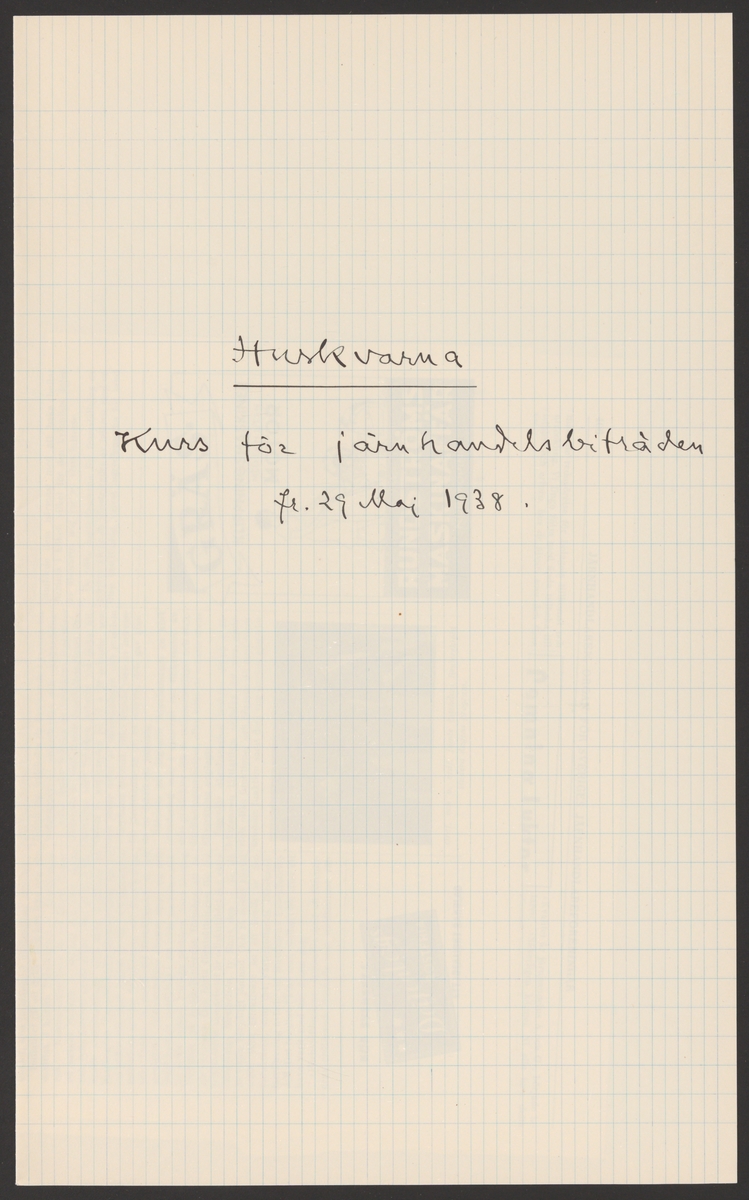 Huskvarna
Kurs för järnhandelsbiträden
fr. 29 Maj 1938.